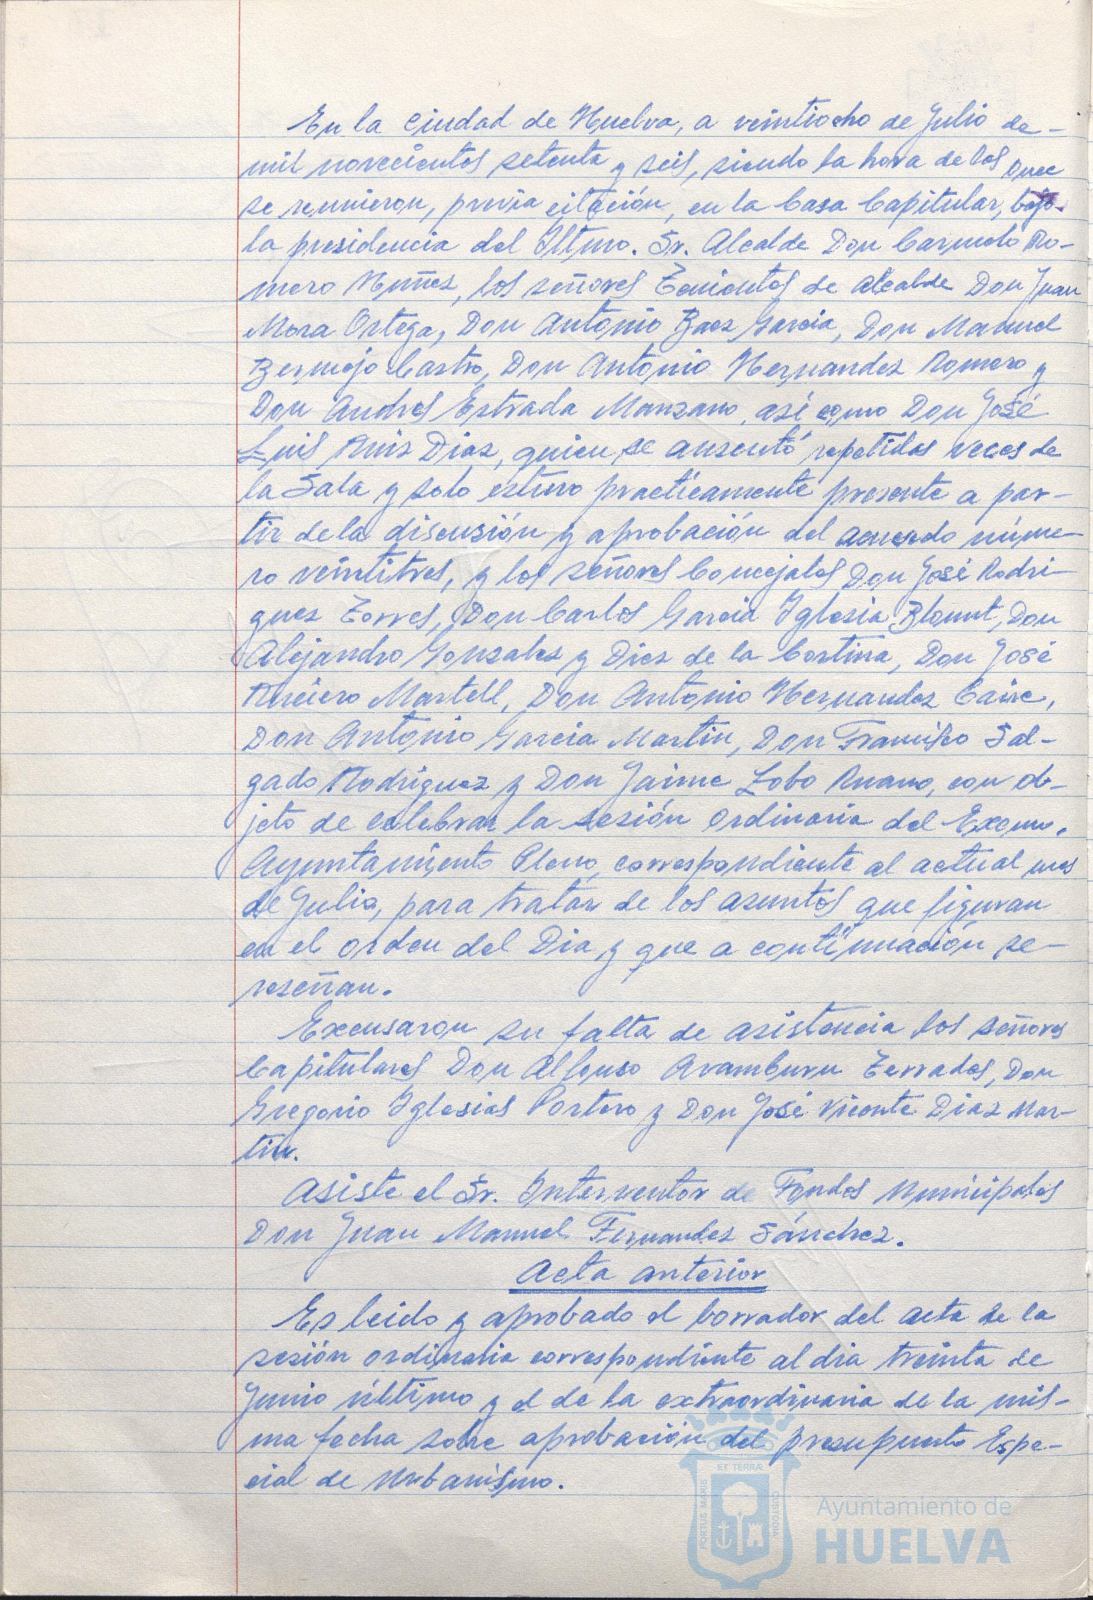 En la Ciudad de Huelva, a veintiocho de Julio de-
mil novecientos setenta y seis, siendo la hora de las once
se reunieron, previa citación, en la Casa Capitular, bajo-
la presidencia del Iltmo. Sr. Alcalde Don Carmelo Ro-
mero Nuñez, los señores Tenientes de Alcalde Don Juan
Mora Ortega, Don Antonio Baez Garcia, Don Manuel
Bermejo Castro, Don Antonio Hernandez Romero y
Don Andres Estrada Manzano, así como Don José
Luis Ruiz Diaz, quien se ausentó repetidas veces de
la Sala y solo estuvo practicamente presente a par-
tir de la discusión y aprobación del acuerdo núme-
ro veintitres, y los señores Concejales Don José Rodri-
guez Torres, Don Carlos Garcia Iglesia Blount, Don
Alejandro Gonzalez y Diez de la Cortina, Don José
Ruciero Martell, Don Antonio Hernandez Caire,
Don Antonio Garcia Martin, Don Francisco Sal-
gado Rodriguez y Don Jaime Lobo Ruano, con ob-
jeto de celebrar la sesión ordinaria del Excmo.
Ayuntamiento Pleno, correspondiente al actual mes
de Julio, para tratar de los asuntos que figuran
en el orden del Dia y que a continuación se-
reseñan.
Excusaron su falta de asistencia los señores
Capitulares Don Alfonso Aramburu Terrades, Don
Gregorio Iglesias Portero y Don José Vicente Diaz Mar-
tin.
Asiste el Sr. Interventor de Fondos Municipales
Don Juan Manuel Fernandez Sánchez.
Acta anterior
Es leido y aprobado el borrador del acta de la
sesión ordinaria correspondiente al dia treinta de
Junio último y el de la extraordinaria de la mis-
ma fecha sobre aprobación del Presupuesto Espe-
cial de Urbanismo.
ET TERRÆ
PORTUS MARIS
CUSTODIA
Ayuntamiento de
HUELVA